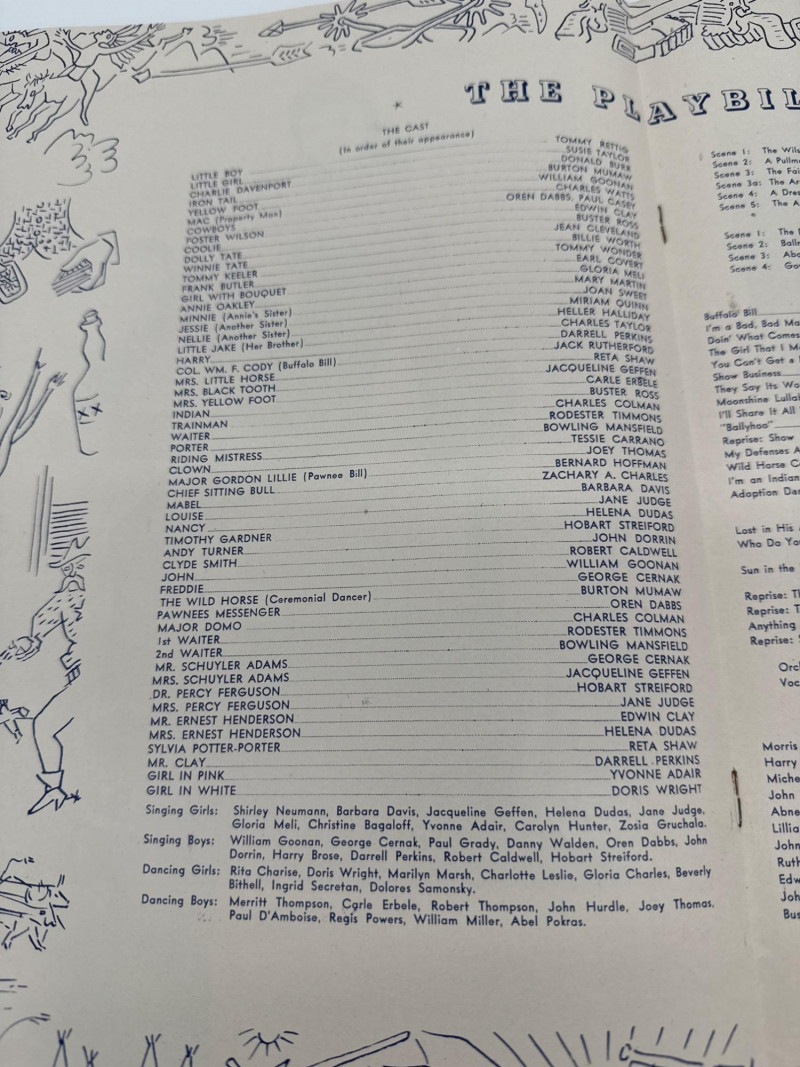 THE PLAYBIL
THE CAST
(In order of their appearance)
LITTLE BOY TOMMY RETTIG
LITTLE GIRL SUSIE TAYLOR
CHARLIE DAVENPORT DONALD BURR
IRON TAIL BURTON MUMAW
YELLOW FOOT WILLIAM GOONAN
MAC (Property Man) CHARLES WATTS
COWBOYS OREN DABBS, PAUL CASEY
FOSTER WILSON EDWIN CLAY
COOLIE BUSTER ROSS
DOLLY TATE JEAN CLEVELAND
WINNIE TATE BILLIE WORTH
TOMMY KEELER TOMMY WONDER
FRANK BUTLER EARL COVERT
GIRL WITH BOUQUET GLORIA MELI
ANNIE OAKLEY MARY MARTIN
MINNIE (Annie's Sister) JOAN SWEET
JESSIE (Another Sister) MIRIAM QUINN
NELLIE (Another Sister) HELLER HALLIDAY
LITTLE JAKE (Her Brother) CHARLES TAYLOR
HARRY DARRELL PERKINS
COL. WM. F. CODY (Buffalo Bill) JACK RUTHERFORD
MRS. LITTLE HORSE RETA SHAW
MRS. BLACK TOOTH JACQUELINE GEFFEN
MRS. YELLOW FOOT CARLE ERBELE
INDIAN BUSTER ROSS
TRAINMAN CHARLES COLMAN
WAITER RODESTER TIMMONS
PORTER BOWLING MANSFIELD
RIDING MISTRESS TESSIE CARRANO
CLOWN JOEY THOMAS
MAJOR GORDON LILLIE (Pawnee Bill) BERNARD HOFFMAN
CHIEF SITTING BULL ZACHARY A. CHARLES
MABEL BARBARA DAVIS
LOUISE JANE JUDGE
NANCY HELENA DUDAS
TIMOTHY GARDNER HOBART STREIFORD
ANDY TURNER JOHN DORRIN
CLYDE SMITH ROBERT CALDWELL
JOHN WILLIAM GOONAN
FREDDIE GEORGE CERNAK
THE WILD HORSE (Ceremonial Dancer) BURTON MUMAW
PAWNEES MESSENGER OREN DABBS
MAJOR DOMO CHARLES COLMAN
1st WAITER RODESTER TIMMONS
2nd WAITER BOWLING MANSFIELD
MR. SCHUYLER ADAMS GEORGE CERNAK
MRS. SCHUYLER ADAMS JACQUELINE GEFFEN
DR. PERCY FERGUSON HOBART STREIFORD
MRS. PERCY FERGUSON JANE JUDGE
MR. ERNEST HENDERSON EDWIN CLAY
MRS. ERNEST HENDERSON HELENA DUDAS
SYLVIA POTTER-PORTER RETA SHAW
MR. CLAY DARRELL PERKINS
GIRL IN PINK YVONNE ADAIR
GIRL IN WHITE DORIS WRIGHT
Singing Girls: Shirley Neumann, Barbara Davis, Jacqueline Geffen, Helena Dudas, Jane Judge,
Gloria Meli, Christine Bagaloff, Yvonne Adair, Carolyn Hunter, Zosia Gruchala.
Singing Boys: William Goonan, George Cernak, Paul Grady, Danny Walden, Oren Dabbs, John
Dorrin, Harry Brose, Darrell Perkins, Robert Caldwell, Hobart Streiford.
Dancing Girls: Rita Charise, Doris Wright, Marilyn Marsh, Charlotte Leslie, Gloria Charles, Beverly
Bithell, Ingrid Secretan, Dolores Samonsky.
Dancing Boys: Merritt Thompson, Carle Erbele, Robert Thompson, John Hurdle, Joey Thomas,
Paul D'Amboise, Regis Powers, William Miller, Abel Pokras.
Scene 1: The Wils
Scene 2: A Pullm
Scene 3: The Fai
Scene 3a: The Ar
Scene 4: A Dres
Scene 5: The A
Scene 1: The
Scene 2: Ballr
Scene 3: Abo
Scene 4: Gov
Buffalo Bill
I'm a Bad, Bad Ma
Doin' What Comes
The Girl That I M
You Can't Get a
Show Business
They Say Its Wo
Moonshine Lullab
I'll Share It All
"Ballyhoo"
Reprise: Show
My Defenses A
Wild Horse C
I'm an Indian
Adoption Dan
Lost in His
Who Do You
Sun in the
Reprise: Th
Reprise: T
Anything
Reprise: S
Orc
Voc
Morris
Harry
Miche
John
Abne
Lillia
John
Ruth
Edw
Joh
Bus